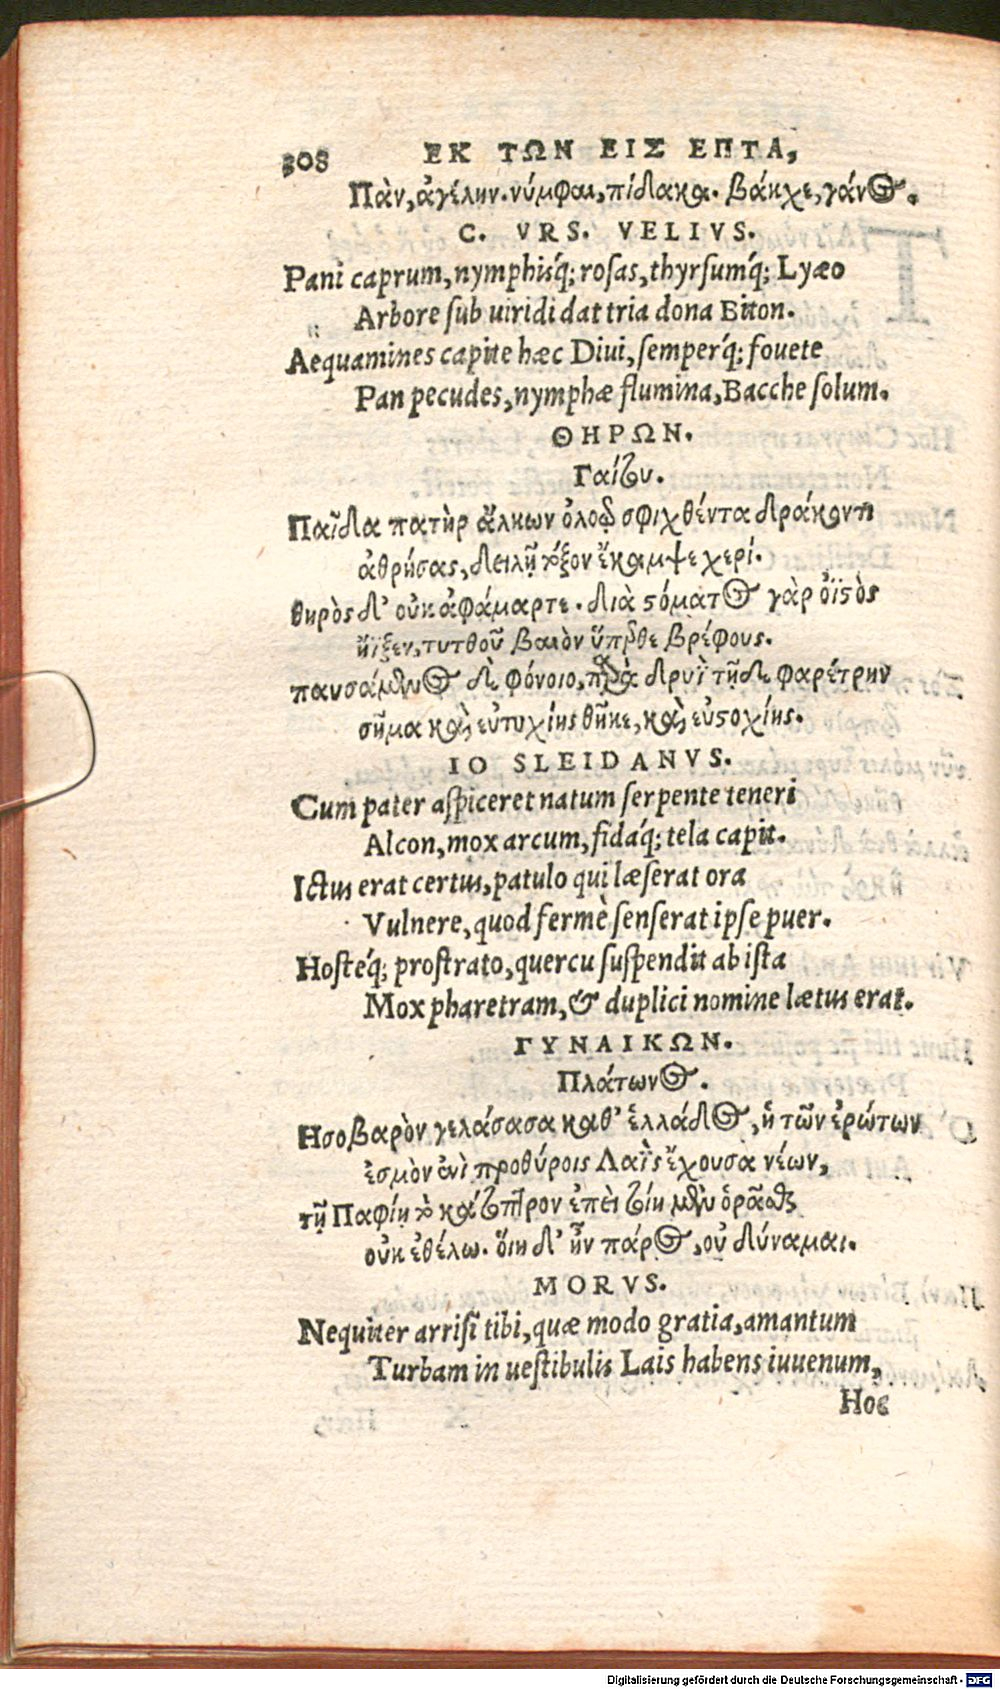 308 ΕΚ ΤΩΝ ΕΙΣ ΕΠΤΑ,
Πὰν, ἀγέλην. νύμφαι, πίδακα. βάκχε, γάνος.
C. VRS. VELIVS.
Pani caprum, nymphisq́; rosas, thyrsumq́; Lyæo
Arbore sub uiridi dat tria dona Biton.
Aequamines capite hæc Diui, semperq́; fouete
Pan pecudes, nymphæ flumina, Bacche solum.
ΘΗΡΩΝ.
Γαίτου.
Παῖδα πατὴρ ἄλκων ὀλοῷ σφιχθέντα δράκοντι
ἀθρήσας, δειλῇ τόξον ἔκαμψε χερί.
θηρὸς δ' οὐκ ἀφάμαρτε. διὰ στόματος γὰρ ὀϊστὸς
ἤϊξεν, τυτθοῦ βαιὸν ὕπερθε βρέφους.
παυσάμενος δὲ φόνοιο, παρὰ δρυῒ τῇδε φαρέτρην
σῆμα καὶ εὐτυχίης θῆκε, καὶ εὐστοχίης.
IO SLEIDANVS.
Cum pater aspiceret natum serpente teneri
Alcon, mox arcum, fidaq́; tela capit.
Ictus erat certus, patulo qui læserat ora
Vulnere, quod fermè senserat ipse puer.
Hosteq́; prostrato, quercu suspendit ab ista
Mox pharetram, & duplici nomine lætus erat.
ΓΥΝΑΙΚΩΝ.
Πλάτωνος.
Ησοβαρὸν γελάσασα καθ' ἑλλάδος, ἡ τῶν ἐρώτων
ἑσμὸν ἐνὶ προθύροις Λαῒς ἔχουσα νέων,
τῇ Παφίῃ τὸ κάτοπτρον ἐπεὶ τοίη μὲν ὁρᾶσθαι
οὐκ ἐθέλω. ὅιη δ' ἦν πάρος, οὐ δύναμαι.
MORVS.
Nequiter arrisi tibi, quæ modo gratia, amantum
Turbam in uestibulis Lais habens iuuenum,
Hoc
Digitalisierung gefördert durch die Deutsche Forschungsgemeinschaft - DFG